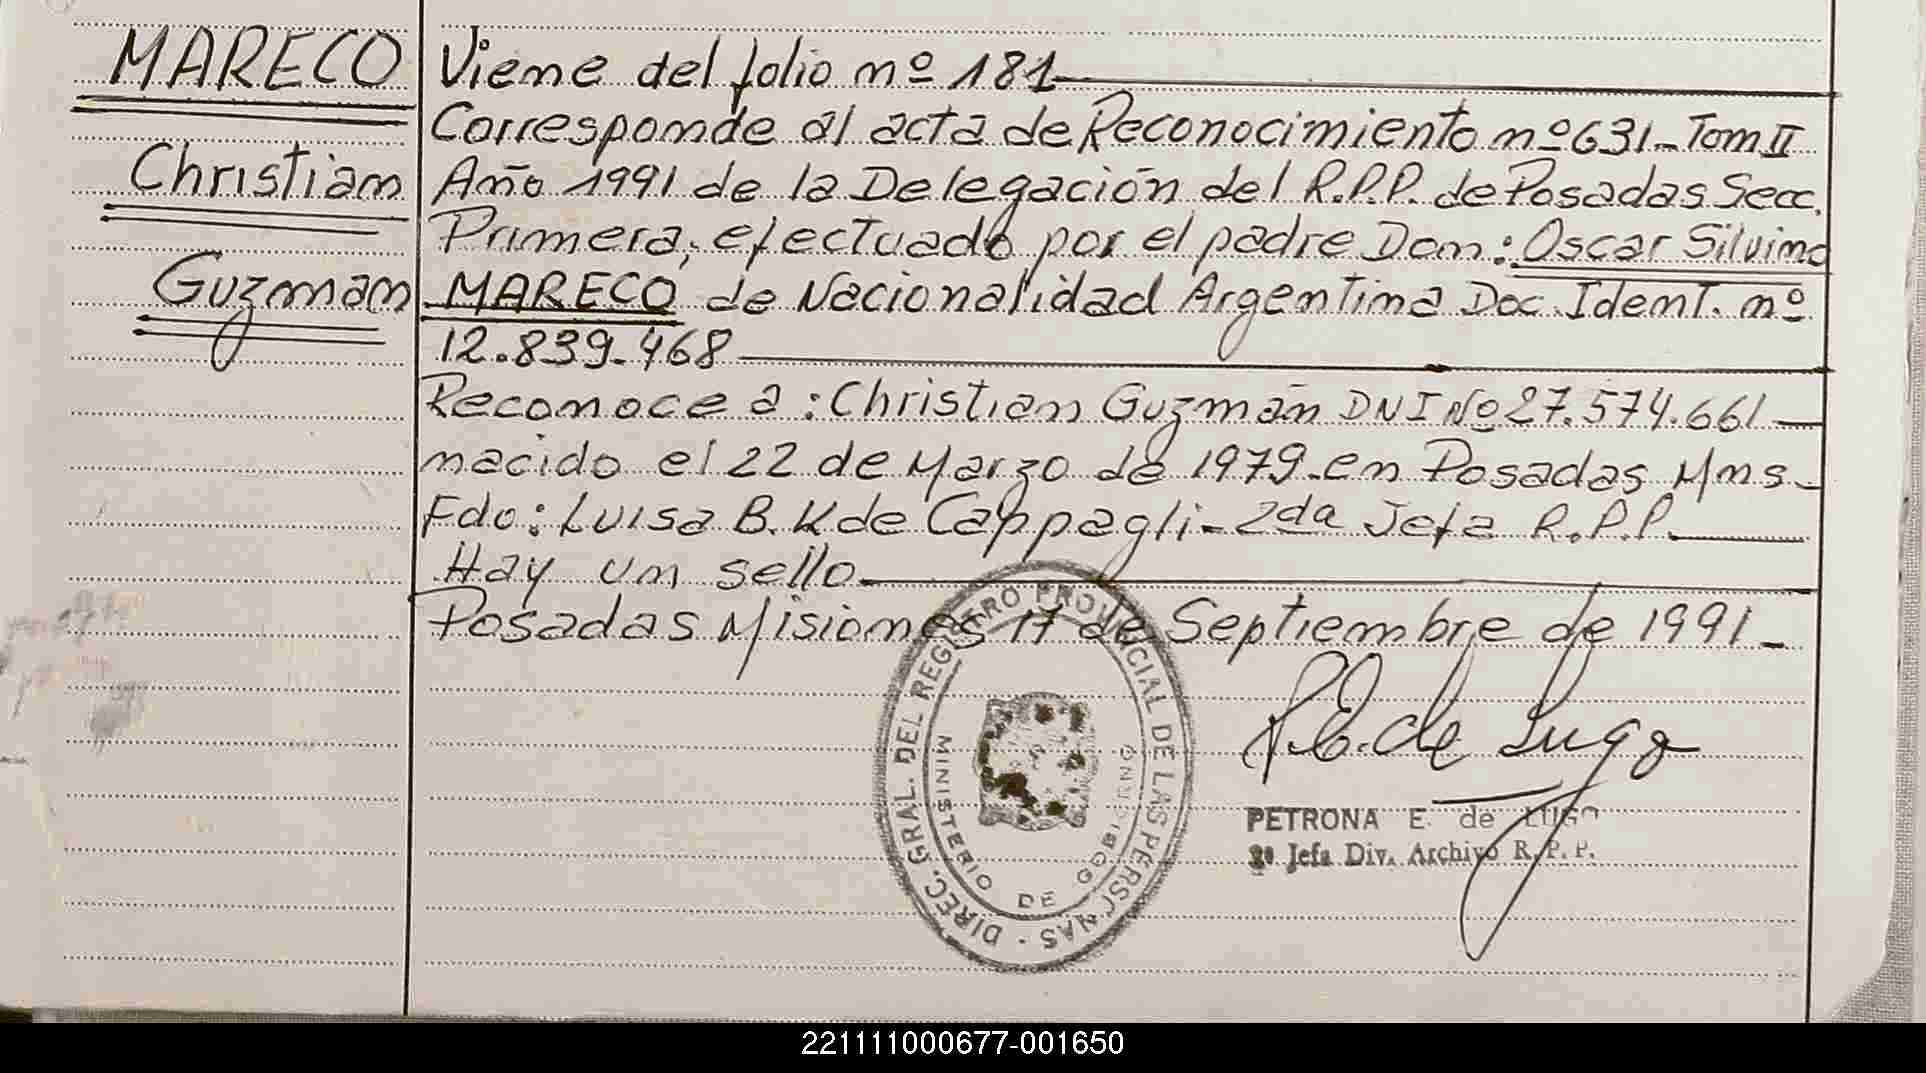 MARECO
Christian
Guzman
Viene del folio nº 181
Corresponde al acta de Reconocimiento nº 631 - Tom II
Año 1991 de la Delegación del R.P.P. de Posadas Secc.
Primera, efectuado por el padre Don: Oscar Silvino
MARECO de Nacionalidad Argentina Doc. Ident. nº
12.839.468
Reconoce a: Christian Guzmán DNI Nº 27.574.661
nacido el 22 de Marzo de 1979 - en Posadas Mns -
Fdo: Luisa B. K de Cappagli - 2da Jefa R.P.P.
Hay un sello
Posadas Misiones 17 de Septiembre de 1991 -
DIREC. GRAL. DEL REGISTRO PROVINCIAL DE LAS PERSONAS
MINISTERIO DE GOBIERNO
P.E. de Lugo
PETRONA E. de LUGO
Jefa Div. Archivo R. P. P.
221111000677-001650